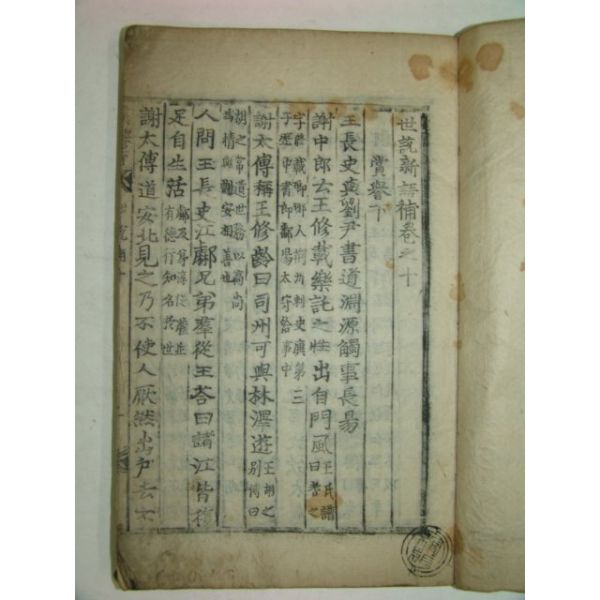 世說新語補卷之十
賞譽下
王長史與劉尹書道淵源觸事長易
謝中郎云王修載樂託之性出自門風王氏譜曰耆之
字脩載琅邪人荊州刺史廙第三
子歷中書郎鄱陽太守給事中
謝太傅稱王修齡曰司州可與林澤遊王胡之別傳曰
胡之常遺世務以高尚
爲情與謝安相善也
人問王長史江虨兄弟羣從王答曰諸江皆復
足自生活虨及弟淳從灌並有德行知名於世
謝太傅道安北見之乃不使人厭然出戶去不